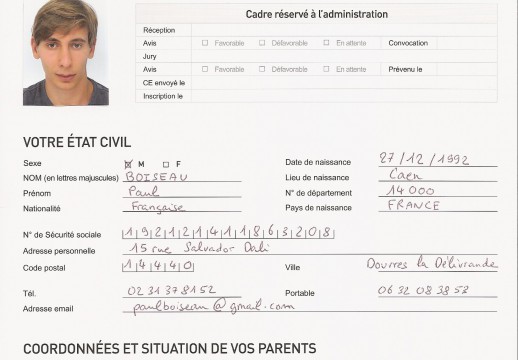 Cadre réservé à l'administration
Réception
Avis Favorable Défavorable En attente Convocation
Jury
Avis Favorable Défavorable En attente Prévenu le
CE envoyé le
Inscription le
VOTRE ÉTAT CIVIL
Sexe M F Date de naissance 27/12/1992
NOM (en lettres majuscules) BOISEAU Lieu de naissance Caen
Prénom Paul N° de département 14000
Nationalité Française Pays de naissance FRANCE
N° de Sécurité sociale 1 9 2 1 2 1 4 1 1 8 6 3 2 0 8
Adresse personnelle 15 rue Salvador Dali
Code postal 1 4 4 4 0 Ville Douvres la Délivrande
Tél. 02 31 37 81 52 Portable 06 32 08 38 53
Adresse email paulboiseau@gmail.com
COORDONNÉES ET SITUATION DE VOS PARENTS